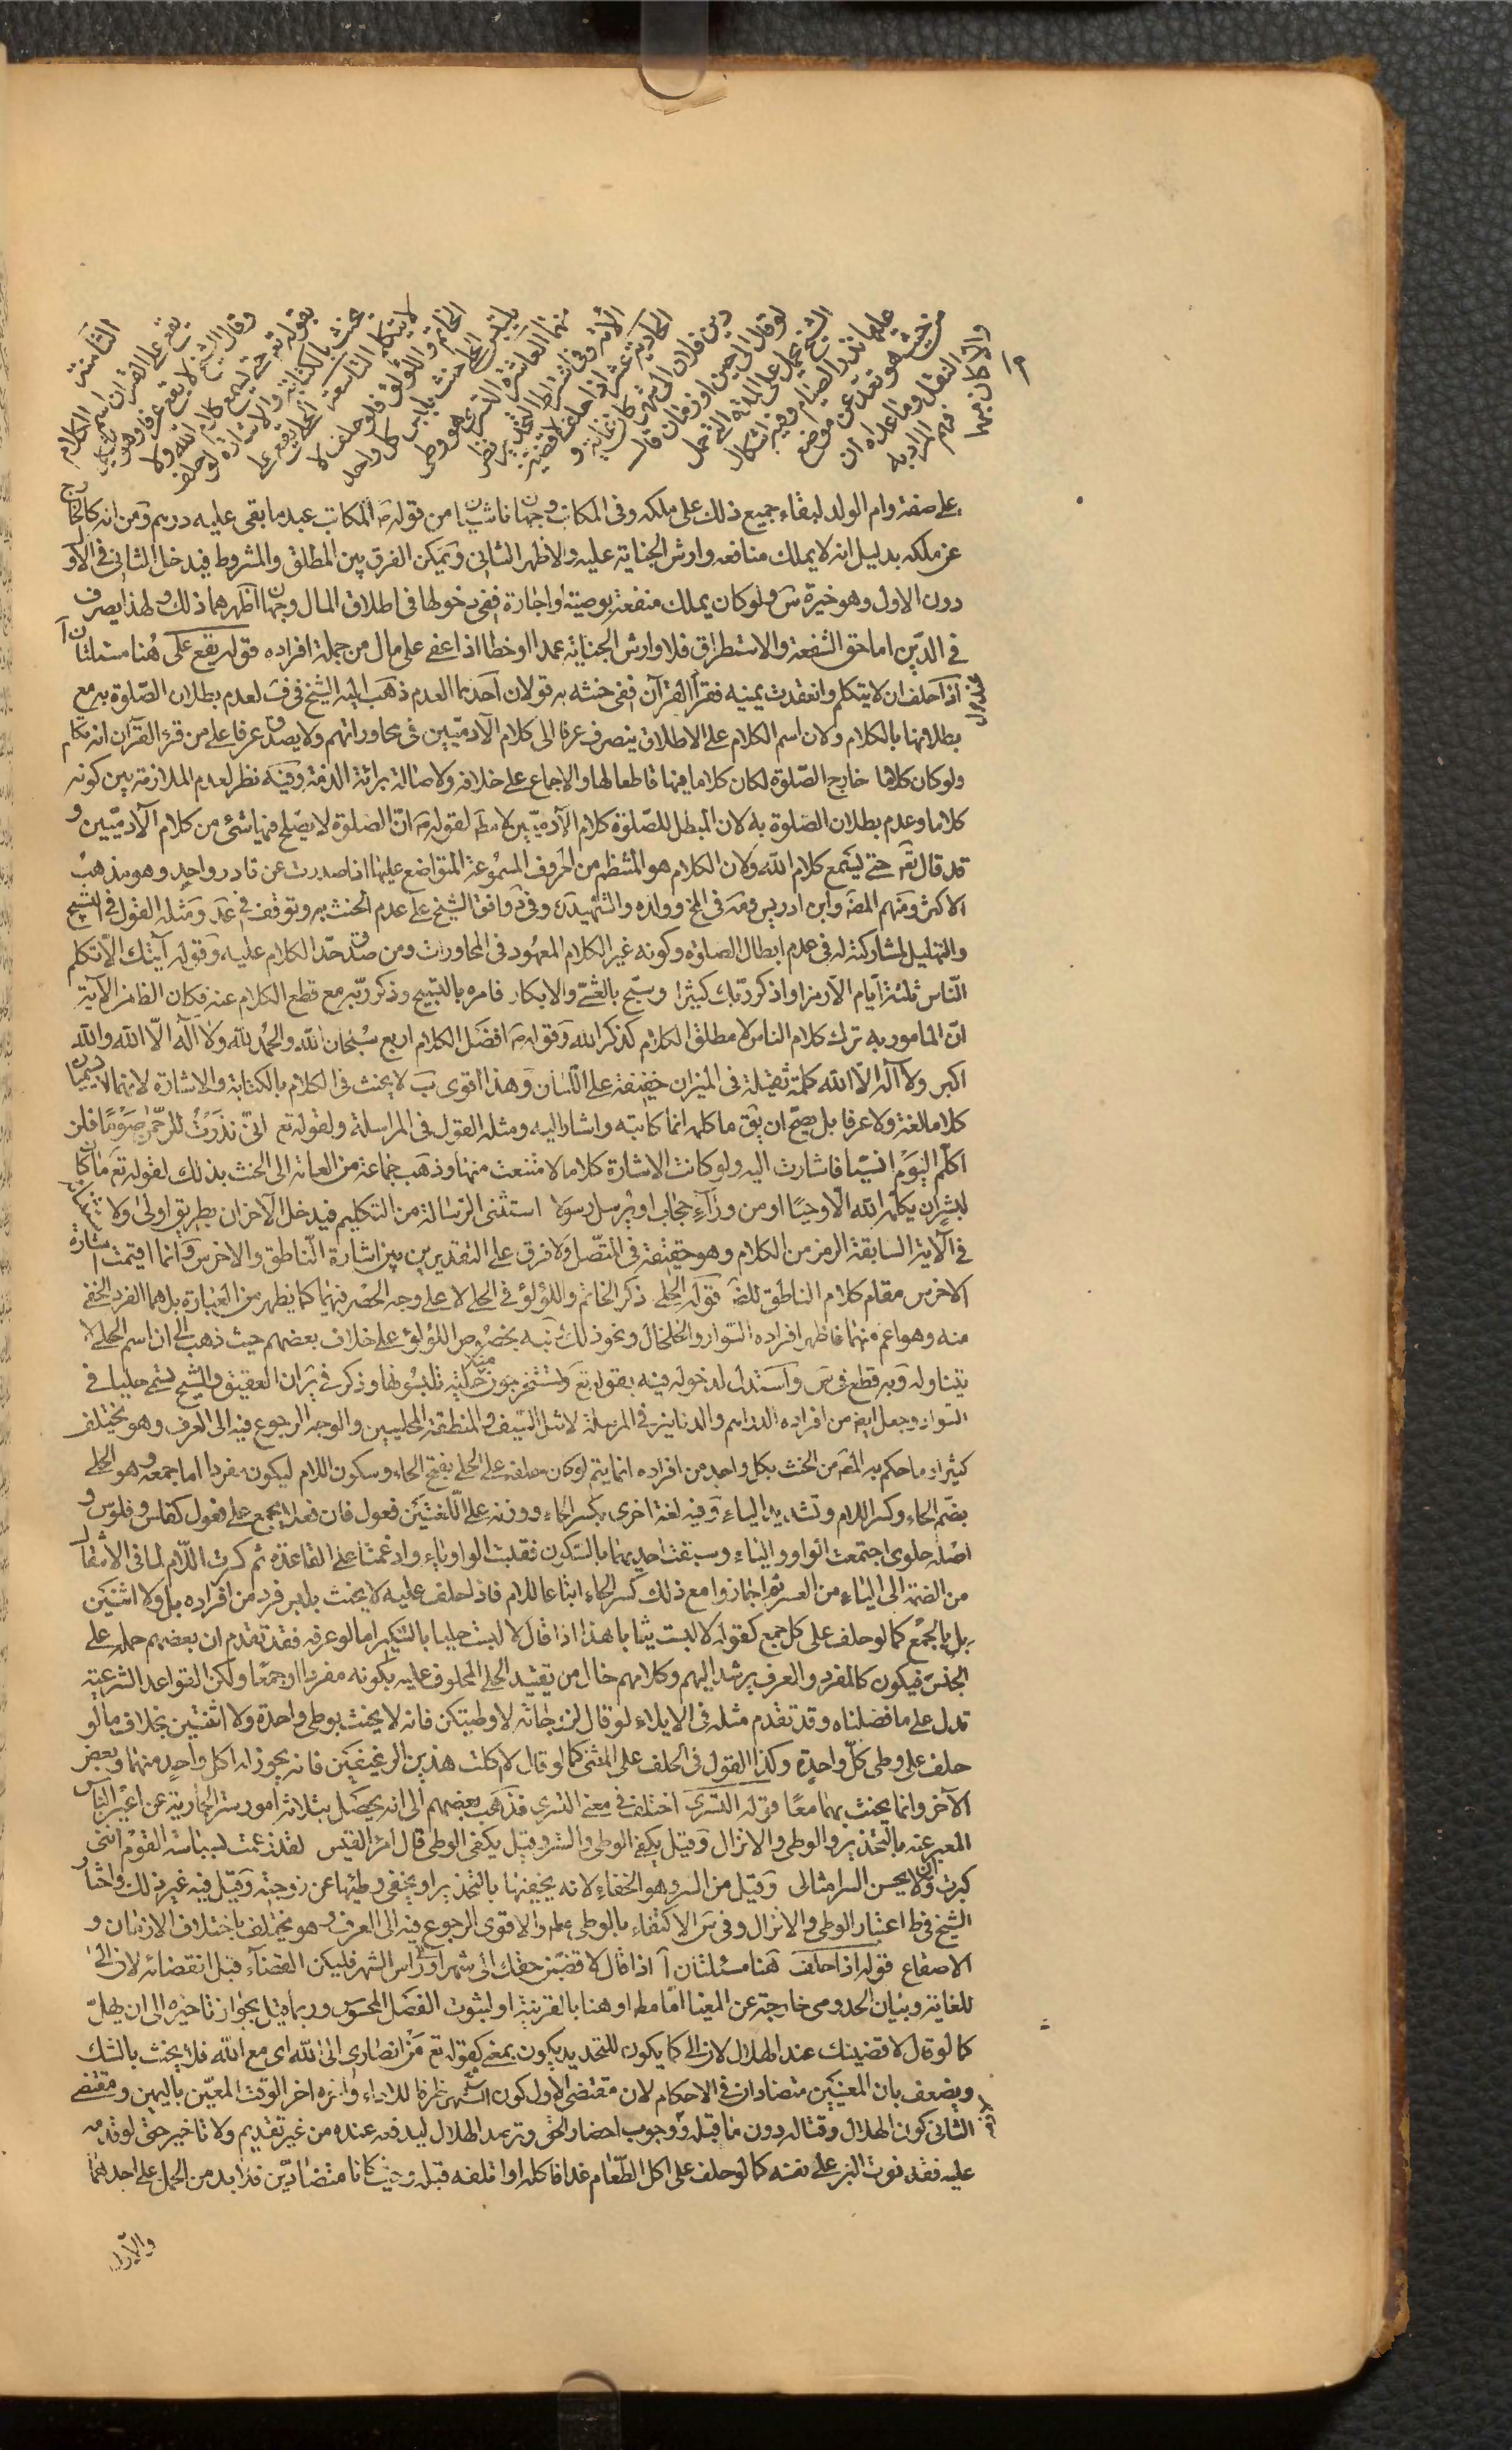 الثامنة
يقع على القرآن اسم الكلام
وقال الشيخ لا يقع عرفا وهو
بقوله تعالى حتى يسمع كلام الله ولا
يحنث بالكتابة والاشارة لو حلف
لا يتكلم التاسعة الحلي يقع على
الخاتم واللؤلؤ فلو حلف لا
يلبس الحلي حنث بلبس كل واحد
منهما العاشرة التسري هو وطى
الأمة وفي اشتراط التخدير نظر
الحادية عشر اذا حلف لاقضين
دين فلان الى شهر كان غاية و
لو قال الى حين او زمان قال
الشيخ يحمل على المدة التي حمل
عليها نذر الصيام وفيه اشكال
من حيث هو تعد عن موضع
النقل وما عداه ان
فهم المراد به
والا كان مبهما
على صفة وام الولد لبقاء جميع ذلك على ملكه وفي المكاتب وجهان ناشيان من قوله المكاتب عبد ما بقى عليه درهم ومن انه كالخارج
عن ملكه بدليل انه لا يملك منافعه وارش الجناية عليه والاظهر الثاني ويمكن الفرق بين المطلق والمشروط فيدخل الثاني في الاو
دون الاول وهو خيرة س ولو كان يملك منفعة بوصية او اجارة ففي دخولها في اطلاق المال وجهان اظهرهما ذلك ولهذا يصرف
في الدين اما حق الشفعة والاستطراق فلا وارش الجناية عمدا او خطا اذا عفى على مال من جملة افراده قوله يقع على هنا مسئلتان آ
اذا حلف ان لا يتكلم وانعقدت يمينه فقرأ القرآن ففي حنثه به قولان احدهما العدم ذهب اليه الشيخ في ف لعدم بطلان الصلوة به مع
بطلانها بالكلام ولان اسم الكلام على الاطلاق ينصرف عرفا الى كلام الآدميين في محاوراتهم ولا يصدق عرفا على من قرء القرآن انه تكلم
ولو كان كلاما خارج الصلوة لكان كلاما فيها قاطعا لها والاجماع على خلافه ولاصالة برائة الذمة وفيه نظر لعدم الملازمة بين كونه
كلاما وعدم بطلان الصلوة به لان المبطل للصلوة كلام الآدميين لا مط لقوله ان الصلوة لا يصلح فيها شئ من كلام الآدميين و
قد قال تع حتى يسمع كلام الله ولان الكلام هو المنتظم من الحروف المسموعة المتواضع عليها اذا صدرت عن قادر واحد وهو مذهب
الاكثر ومنهم المص وابن ادريس وفي المخ وولده والشهيد وفي وافق الشيخ على عدم الحنث به وتوقف في عد ومثله القول في التسبيح
والتهليل لمشاركته له في عدم ابطال الصلوة وكونه غير الكلام المعهود في المحاورات ومن صدق حد الكلام عليه وقوله آيتك الا تكلم
الناس ثلثة ايام الا رمزا واذكر ربك كثيرا وسبح بالعشي والابكار فامره بالتسبيح وذكر ربه مع قطع الكلام عنه فكان الظاهر الآية
ان المامور به ترك كلام الناس لا مطلق الكلام كذكر الله وقوله افضل الكلام اربع سبحان الله والحمد لله ولا اله الا الله والله
اكبر ولا اله الا الله كلمة ثقيلة في الميزان خفيفة على اللسان وهذا اقوى ب لا يحنث في الكلام بالكتابة والاشارة لانهما لا يسميان
كلاما لغة ولا عرفا بل يصح ان يق ما كلمه انما كاتبه واشار اليه ومثله القول في المراسلة ولقوله تع اني نذرت للرحمن صوما فلن
اكلم اليوم انسيا فاشارت اليه ولو كانت الاشارة كلاما لامتنعت منها وذهب جماعة من العامة الى الحنث بذلك لقوله تع ما كان
لبشر ان يكلمه الله الا وحيا او من وراء حجاب او يرسل رسولا استثنى الرسالة من التكليم فيدخل الآخران بطريق اولى ولاستثنائه
في الآية السابقة الرمز من الكلام وهو حقيقة في المتصل ولا فرق على التقديرين بين اشارة الناطق والاخرس وانما اقيمت اشارة
الاخرس مقام كلام الناطق للض قوله الحلي ذكر الخاتم واللؤلؤ في الحلي لا على وجه الحصر فيهما كما يظهر من العبارة بل هما الفرد الخفي
منه وهو اعم منهما فاظهر افراده السوار والخلخال ونحو ذلك ونبه بخصوص اللؤلؤ على خلاف بعضهم حيث ذهب الى ان اسم الحلي لا
يتناوله وبه قطع في س واستدل لدخوله فيه بقوله تع وتستخرجون منه حلية تلبسونها وذكر في س ان العقيق والسبج يسمى حليا في
السواد وجعل ايض من افراده الدراهم والدنانير في المرسلة لا مثل السيف والمنطقة المحليين والوجه الرجوع فيه الى العرف وهو يختلف
كثيرا وما حكم به المص من الحنث بكل واحد من افراده انما يتم لو كان حلفه على الحلي بفتح الحاء وسكون اللام ليكون مفردا اما جمعه وهو الحلي
بضم الحاء وكسر اللام وتشديد الياء وفيه لغة اخرى بكسر الحاء ووزنه على اللغتين فعول فان فعلا يجمع على فعول كفلس وفلوس و
اصله حلوى اجتمعت الواو والياء وسبقت احديهما بالسكون فقلبت الواو ياء وادغمت على القاعدة ثم كسرت اللام لما في الانتقال
من الضمة الى الياء من العسر ثم اجازوا مع ذلك كسر الحاء اتباعا للام فاذا حلف عليه لا يحنث بلبس فرد من افراده بل ولا اثنين
بل بالجمع كما لو حلف على كل جمع كقوله لا لبست ثيابا هذا اذا قال لا لبست حليا بالتنكير اما لو عرفه فقد تقدم ان بعضهم حمله على
الجنس فيكون كالمفرد والعرف يرشد اليهم وكلامهم خال من تقييد الحلي المحلوف عليه بكونه مفردا او جمعا ولكن القواعد الشرعية
تدل على ما فصلناه وقد تقدم مثله في الايلاء لو قال لزوجاته لا وطيتكن فانه لا يحنث بوطى واحدة ولا اثنتين بخلاف ما لو
حلف على وطى كل واحدة وكذا القول في الحلف على المثنى كما لو قال لا اكلت هذين الرغيفين فانه يجوز له اكل واحد منهما وبعض
الآخر وانما يحنث بهما معا قوله التسري اختلف في معنى التسري فذهب بعضهم الى انه يحصل بثلاثة امور ستر الجارية عن اعين الناس
المعبر عنه بالتخدير والوطى والانزال وقيل يكفي الوطى والستر وقيل يكفي الوطى قال امرء القيس لقد زعمت بسباسة القوم انني
كبرت وان لا يحسن السر امثالى وقيل من السر وهو الخفاء لانه يخفيها بالتخدير او يخفي وطيها عن زوجته وقيل فيه غير ذلك واختار
الشيخ في ط اعتبار الوطى والانزال وفي س الاكتفاء بالوطى والاقوى الرجوع فيه الى العرف وهو يختلف باختلاف الازمان و
الاصقاع قوله اذا حلف هنا مسئلتان آ اذا قال لاقضين حقك الى شهر او الى راس الشهر فليكن القضاء قبل انقضائه لان الى
للغاية وبيان الحد ومى خارجة عن المغيا اما مط او هنا بالقرينة او لثبوت الفصل المحسوس وربما قيل بجواز تاخيره الى ان يهل
كما لو قال لاقضينك عند الهلال لان الى كما يكون للتحديد يكون بمعنى كقوله تع من انصاري الى الله اى مع الله فلا يحنث بالشك
ويضعف بان المعنيين متضادان في الاحكام لان مقتضى الاول كون الشهر ظرفا للاداء وآخره اخر الوقت المعين باليمين ومقتضى
الثاني كون الهلال وقتا له دون ما قبله ووجوب احضار الحق وترصد الهلال ليدفعه عنده من غير تقديم ولا تاخير حتى لو قدمه
عليه فقد فوت البر على نفسه كما لو حلف على اكل الطعام غدا فاكله او اتلفه قبله وحيث كانا متضادين فلا بد من الحمل على احدهما